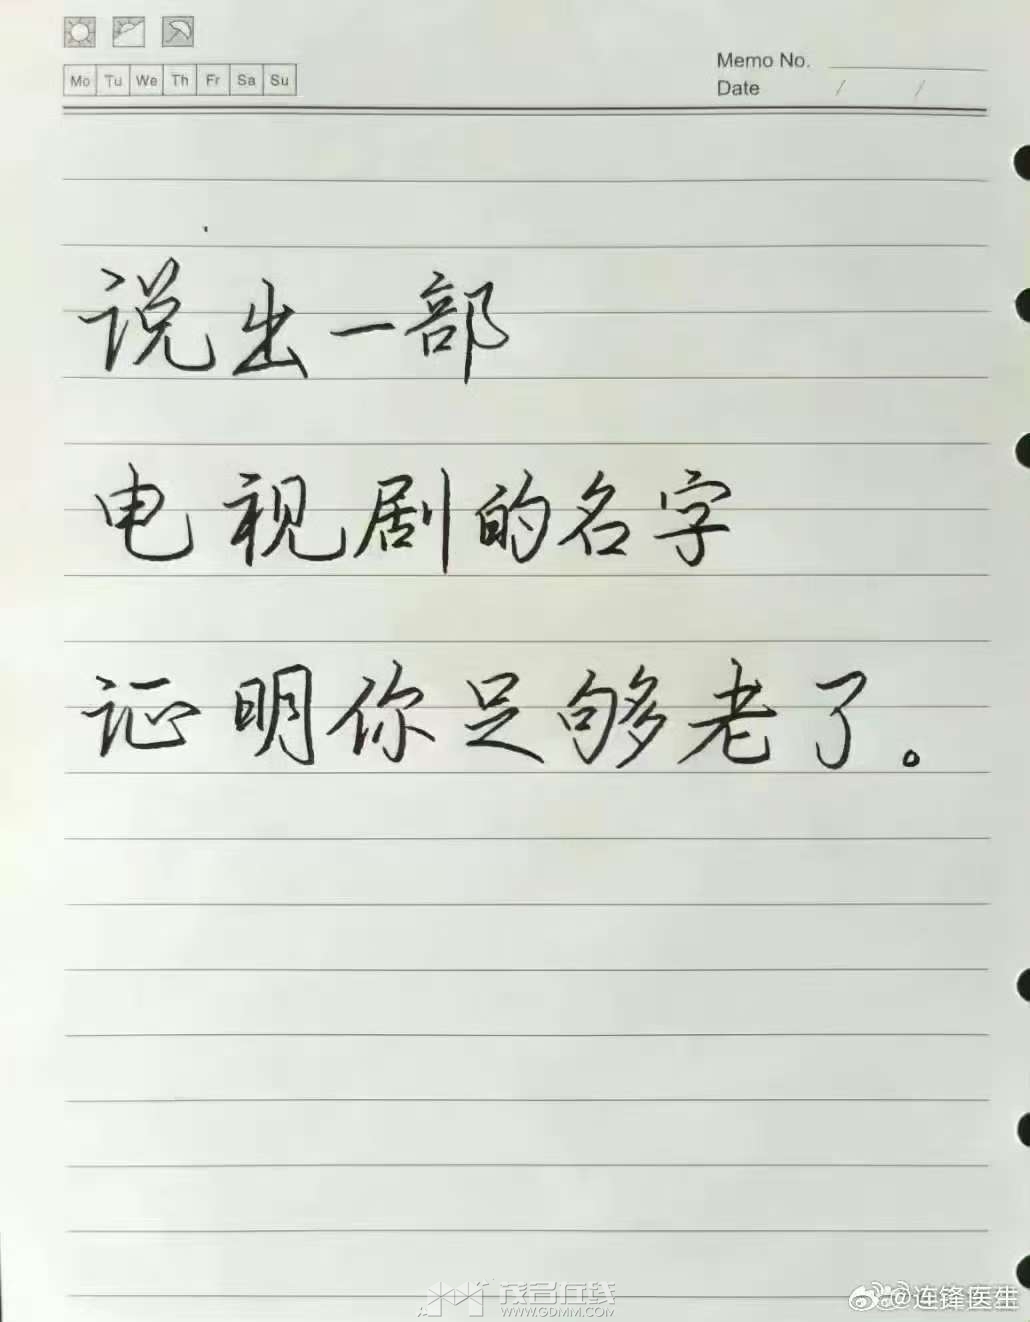 Mo Tu We Th Fr Sa Su
Memo No.
Date / /
说出一部
电视剧的名字
证明你足够老了。
茂名在线
WWW.GDMM.COM
@连锋医生